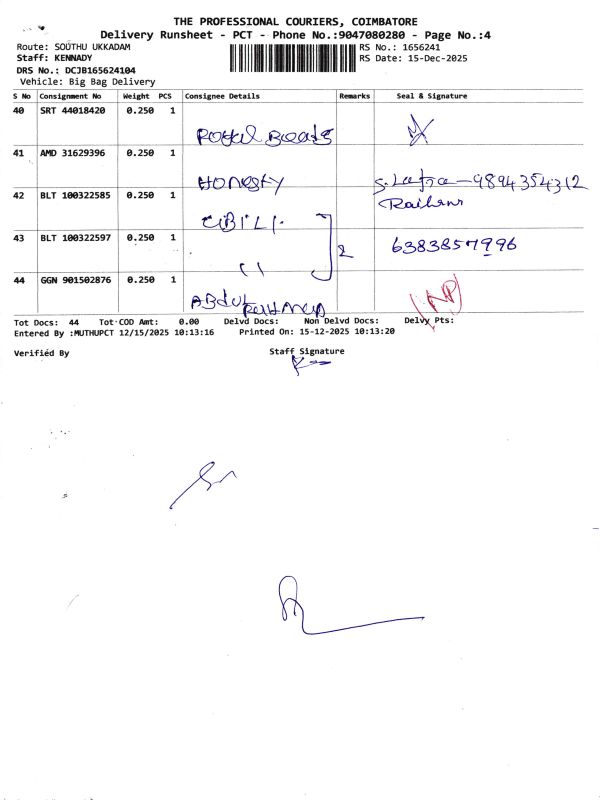 THE PROFESSIONAL COURIERS, COIMBATORE
Delivery Runsheet - PCT - Phone No.:9047080280 - Page No.:4
Route: SOUTHU UKKADAM RS No.: 1656241
Staff: KENNADY RS Date: 15-Dec-2025
DRS No.: DCJB165624104
Vehicle: Big Bag Delivery
S No Consignment No Weight PCS Consignee Details Remarks Seal & Signature
40 SRT 44018420 0.250 1
Royal Beads
41 AMD 31629396 0.250 1
Honesty S. Lafra - 9894354312
42 BLT 100322585 0.250 1 Raihana
CIBILI
43 BLT 100322597 0.250 1 6383857996
" 2
44 GGN 901502876 0.250 1 NP
Abdul Rahman
Tot Docs: 44 Tot COD Amt: 0.00 Delvd Docs: Non Delvd Docs: Delvy Pts:
Entered By :MUTHUPCT 12/15/2025 10:13:16 Printed On: 15-12-2025 10:13:20
Verified By Staff Signature